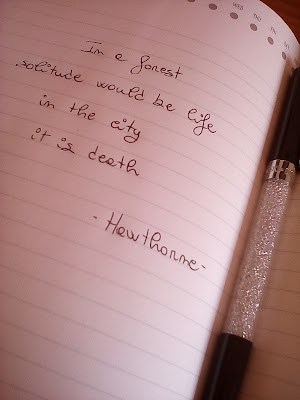 WED THU FRI
In a forest
solitude would be life
in the city
it is death
-Hawthorne-